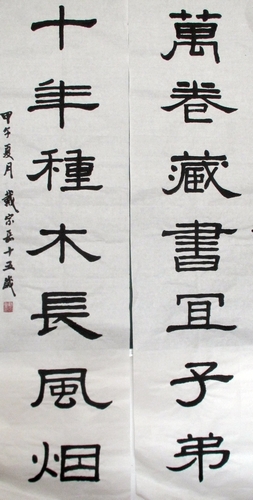 萬卷藏書宜子弟
十年種木長風烟
甲午夏月戴宗岳十五歲